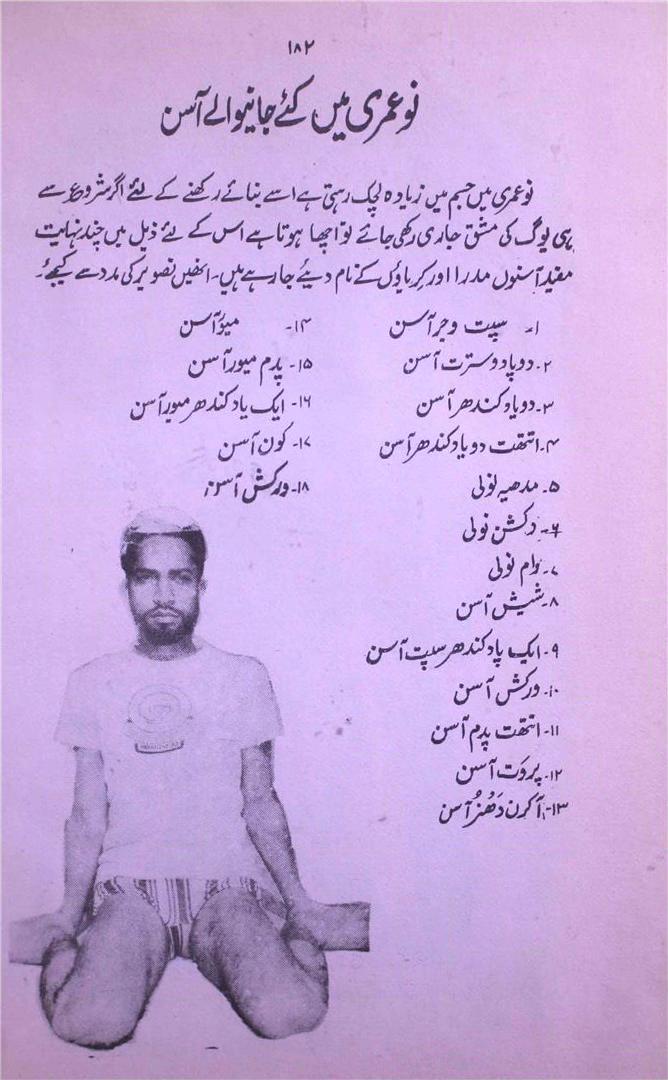 ۱۸۲
نو عمری میں کئے جانیوالے آسن
نو عمری میں جسم میں زیادہ لچک رہتی ہے اسے بنائے رکھنے کے لئے اگر شروع سے
ہی یوگ کی مشق جاری رکھی جائے تو اچھا ہوتا ہے اس کے لئے ذیل میں چند نہایت
مفید آسنوں مدرا اور کریاؤں کے نام دیئے جا رہے ہیں۔ انھیں تصویر کی مدد سے کیجئے۔
۱۔ سپت وجر آسن
۲۔ دوپاد وسترت آسن
۳۔ دوپاد کندھر آسن
۴۔ اتتھت دوپاد کندھر آسن
۵۔ مدھیہ نولی
۶۔ دکشن نولی
۷۔ وام نولی
۸۔ شیش آسن
۹۔ ایک پاد کندھر سپت آسن
۱۰۔ ورکش آسن
۱۱۔ اتتھت پدم آسن
۱۲۔ پروَت آسن
۱۳۔ آکرن دَھنُر آسن
۱۴۔ میوُر آسن
۱۵۔ پدم میور آسن
۱۶۔ ایک پاد کندھر میور آسن
۱۷۔ کون آسن
۱۸۔ ورکش آسن